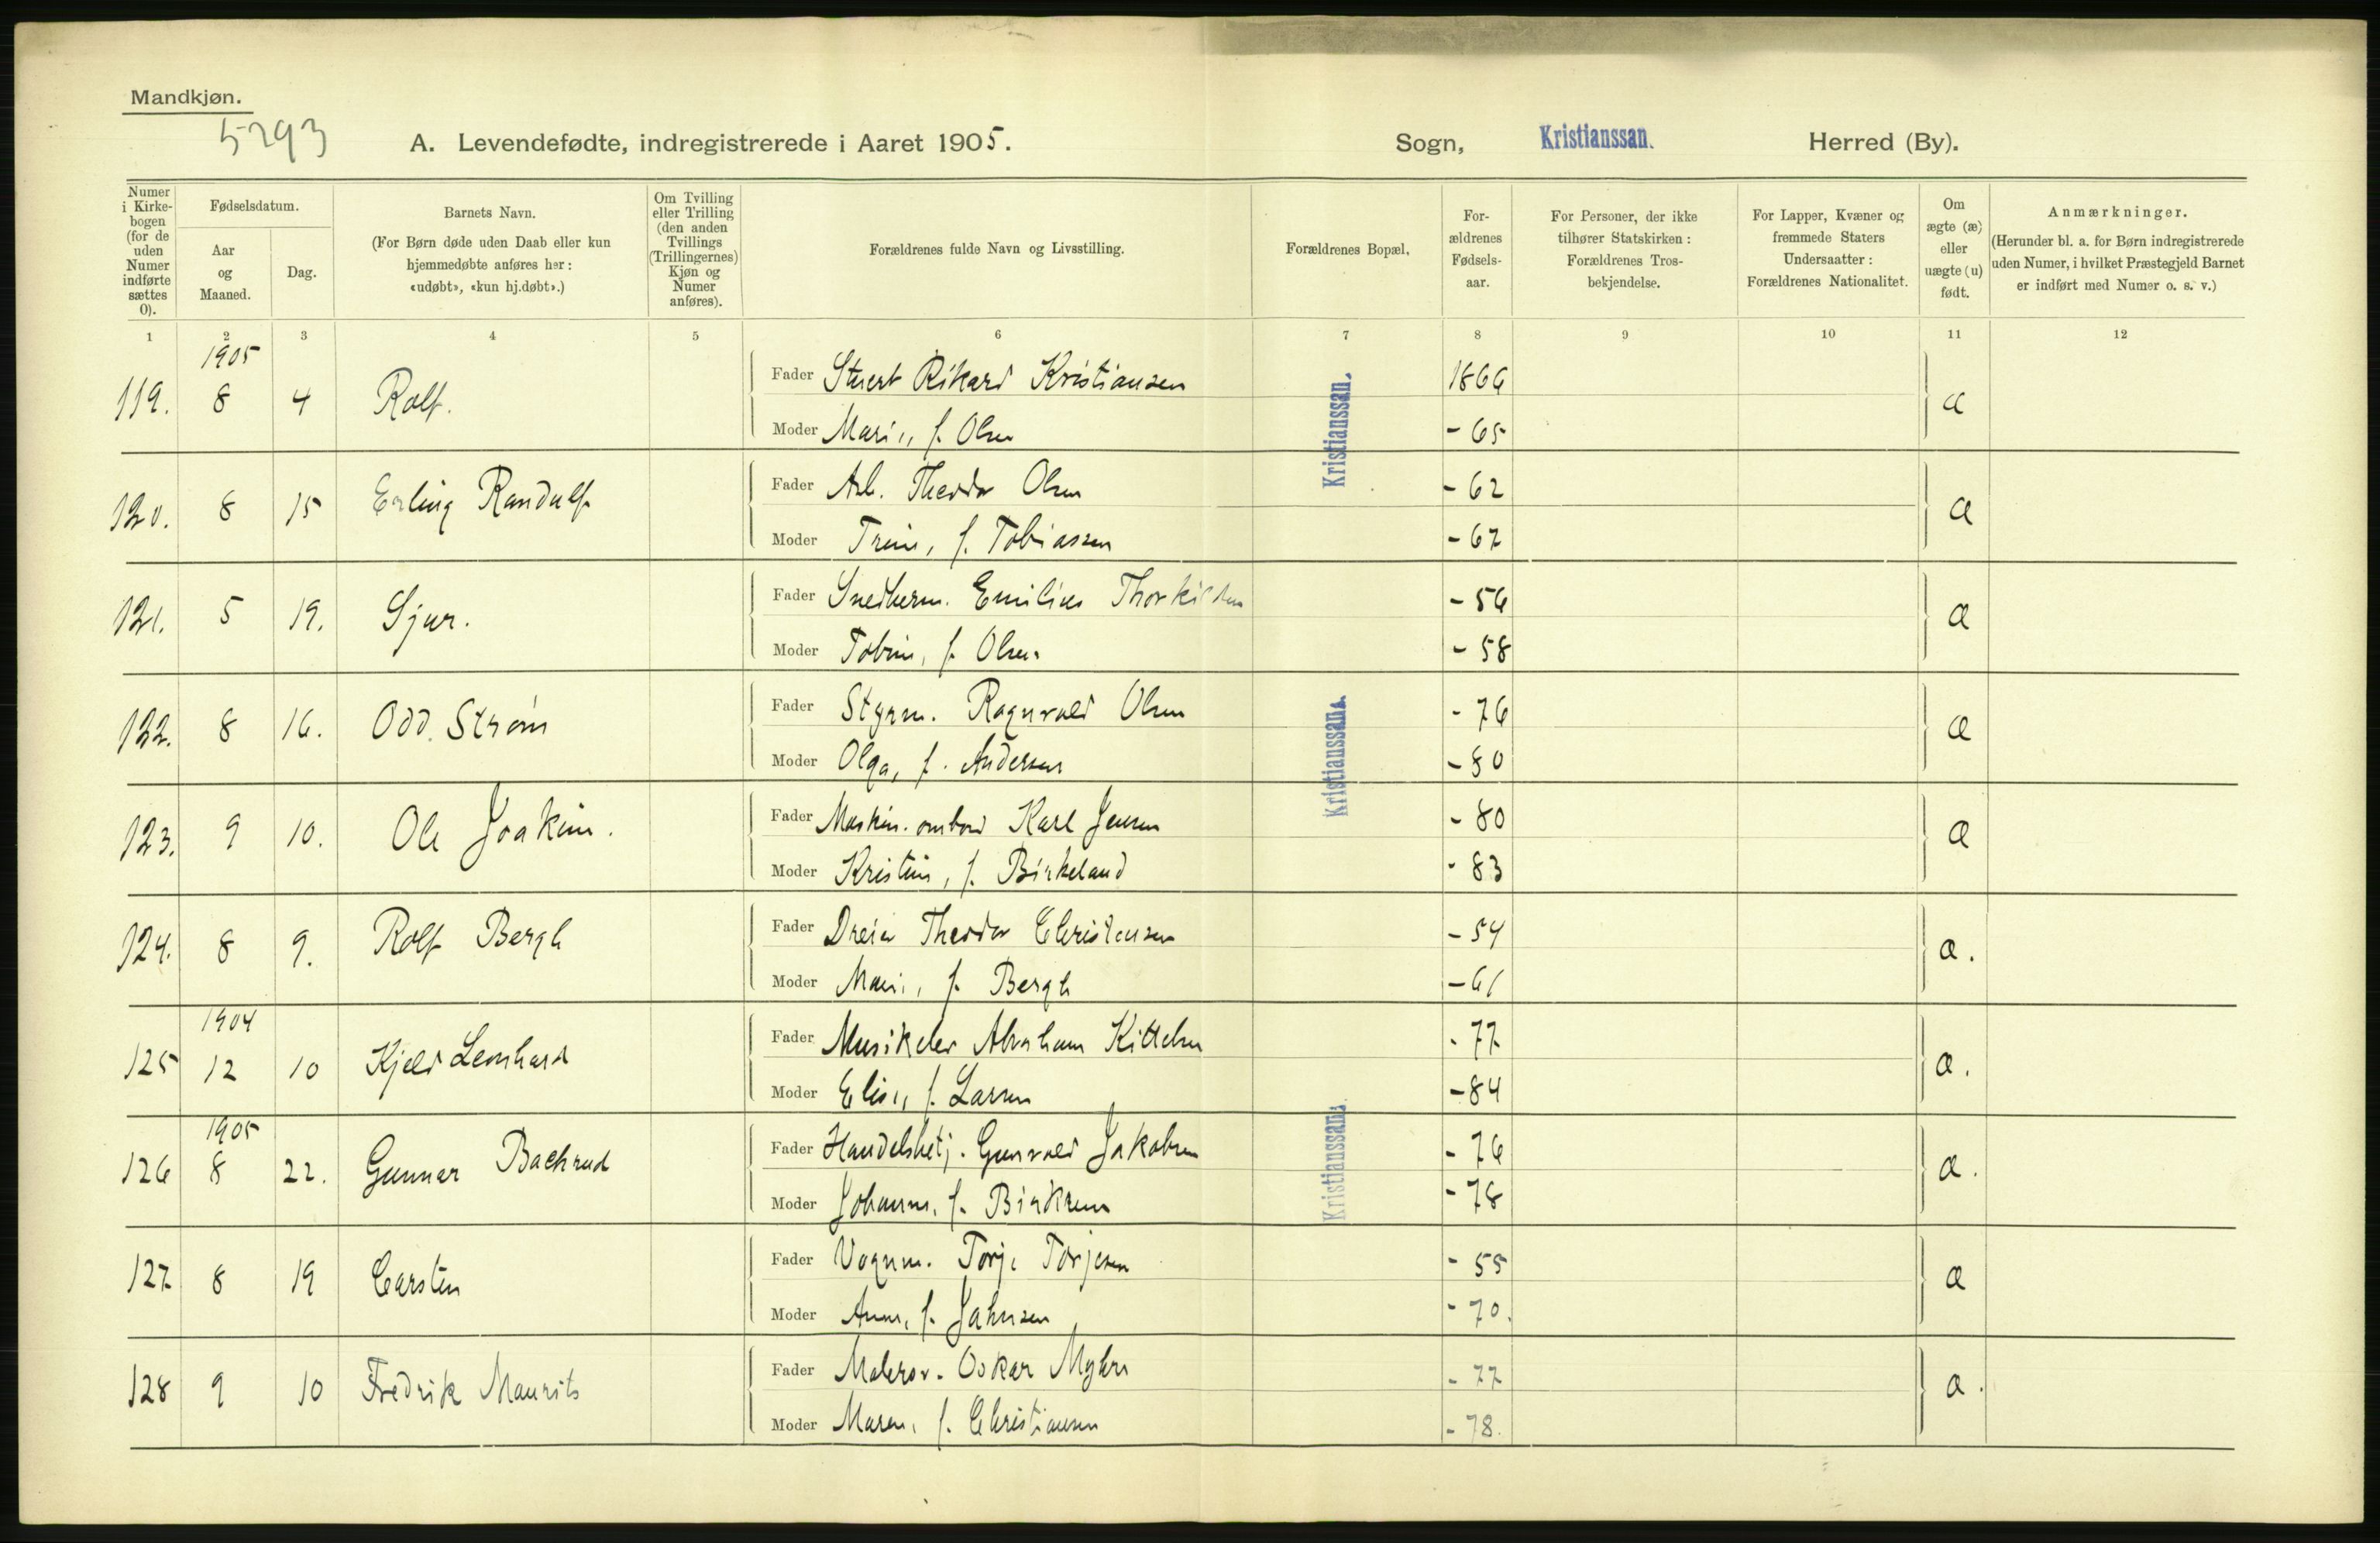 Mandkjøn.
5293
A. Levendefødte, indregistrerede i Aaret 1905. Sogn, Kristianssan. Herred (By).
Numer i Kirkebogen (for de uden Numer indførte sættes 0).
Fødselsdatum.
Aar og Maaned.
Dag.
Barnets Navn.
(For Børn døde uden Daab eller kun hjemmedøbte anføres her: «udøbt», «kun hj.døbt».)
Om Tvilling eller Trilling (den anden Tvillings (Trillingernes) Kjøn og Numer anføres).
Forældrenes fulde Navn og Livsstilling.
Forældrenes Bopæl.
Forældrenes Fødselsaar.
For Personer, der ikke tilhører Statskirken: Forældrenes Trosbekjendelse.
For Lapper, Kvæner og fremmede Staters Undersaatter: Forældrenes Nationalitet.
Om ægte (æ) eller uægte (u) født.
Anmærkninger.
(Herunder bl. a. for Børn indregistrerede uden Numer, i hvilket Præstegjeld Barnet er indført med Numer o. s. v.)
1 2 3 4 5 6 7 8 9 10 11 12
1905
119. 8 4 Rolf. Fader Stuert Rikard Kristiansen Kristianssan. 1866 æ
Moder Marie, f. Olsen - 65
120. 8 15 Erling Randulf Fader Arb. Theodor Olsen - 62 æ
Moder Trine, f. Tobiassen - 67
121. 5 19. Sjur. Fader Snedkerm. Emilius Thorkildsen - 56 æ
Moder Tobine, f. Olsen - 58
122. 8 16. Odd Strøm Fader Styrm. Ragnvald Olsen Kristianssan. - 76 æ
Moder Olga, f. Andersen - 80
123. 9 10. Ole Joakim. Fader Maskin. ombord Karl Jensen - 80 æ
Moder Kristine, f. Birkeland - 83
124. 8 9. Rolf Bergh Fader Dreier Theodor Christensen - 54 æ.
Moder Marie, f. Bergh - 61
1904
125 12 10 Kjeld Leonhard Fader Musikelev Abraham Kittelsen - 77 æ.
Moder Elise, f. Larsen - 84
1905
126 8 22. Gunnar Fader Handelsbetj. Gunvald Jakobsen Kristianssan. - 76 æ.
Moder Johanne, f. - 78
127 8 19 Carsten Fader Vognm. Torje Torjesen - 55 æ
Moder Anna, f. Jahnsen - 70.
128 9 10 Fredrik Maurits Fader Malersv. Oskar Myhre - 77 æ.
Moder Maren, f. Christiansen - 78.